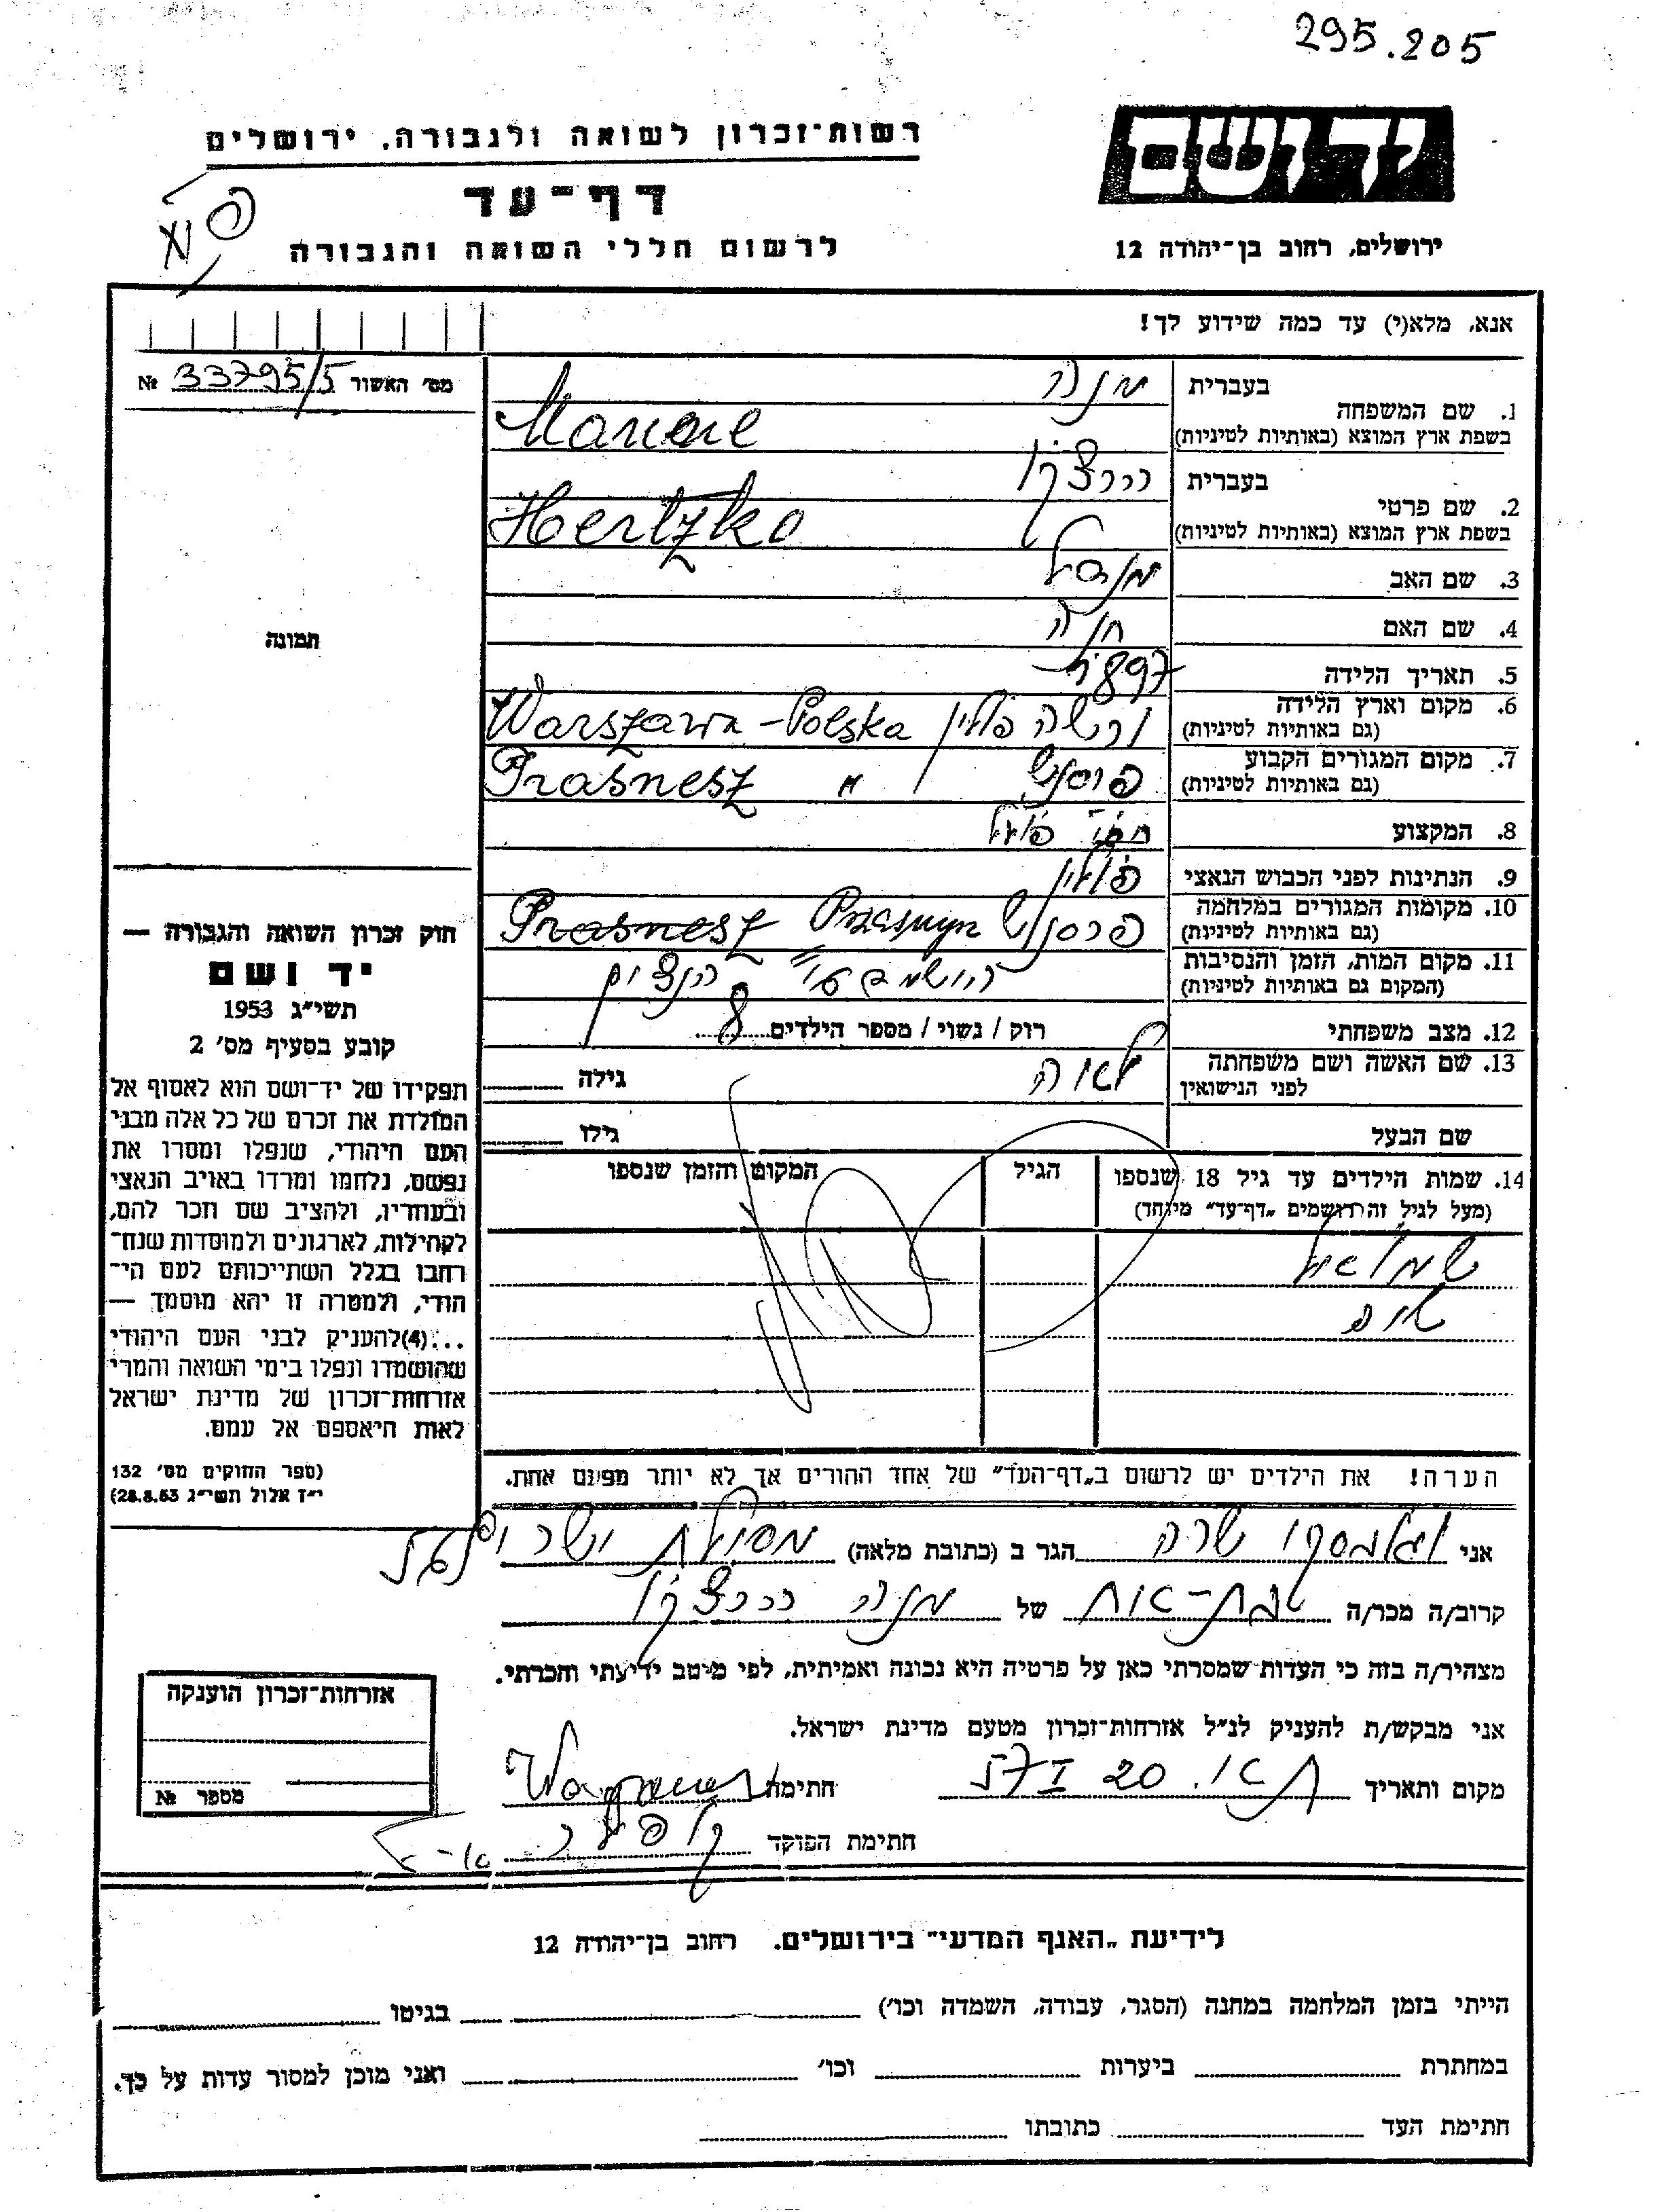 295.205
יד ושם
רשות־זכרון לשואה ולגבורה, ירושלים
דף־עד
ירושלים, רחוב בן־יהודה 12
לרשום חללי השואה והגבורה
אנא, מלא(י) עד כמה שידוע לך!
מס׳ האשור 33795/5 №
1. שם המשפחה
בעברית מנה
בשפת ארץ המוצא (באותיות לטיניות)
2. שם פרטי
בעברית הרצקו
בשפת ארץ המוצא (באותיות לטיניות) Hertzko
3. שם האב מנדל
4. שם האם חנה
5. תאריך הלידה 1897
6. מקום וארץ הלידה ורשה פולין Warszawa - Polska
(גם באותיות לטיניות)
7. מקום המגורים הקבוע פרסנש " Prasnesz
(גם באותיות לטיניות)
8. המקצוע
9. הנתינות לפני הכבוש הנאצי פולין
10. מקומות המגורים במלחמה פרסנש Przasnysz Prasnesz
(גם באותיות לטיניות)
11. מקום המות, הזמן והנסיבות הושמד ע״י הנצים
(המקום גם באותיות לטיניות)
12. מצב משפחתי רווק / נשוי / מספר הילדים 8
13. שם האשה ושם משפחתה לאה גילה
לפני הנישואין
שם הבעל גילו
14. שמות הילדים עד גיל 18 שנספו
(מעל לגיל זה רושמים „דף־עד״ מיוחד)
הגיל
המקום והזמן שנספו
שמואל
תמונה
חוק זכרון השואה והגבורה —
יד ושם
תשי״ג 1953
קובע בסעיף מס׳ 2
תפקידו של יד־ושם הוא לאסוף אל
המולדת את זכרם של כל אלה מבני
העם היהודי, שנפלו ומסרו את
נפשם, נלחמו ומרדו באויב הנאצי
ובעוזריו, ולהציב שם וזכר להם,
לקהילות, לארגונים ולמוסדות שנח־
רבו בגלל השתייכותם לעם הי־
הודי, ולמטרה זו יהא מוסמך —
...(4) להעניק לבני העם היהודי
שהושמדו ונפלו בימי השואה והמרי
אזרחות־זכרון של מדינת ישראל
לאות היאספם אל עמם.
(ספר החוקים מס׳ 132
י״ז אלול תשי״ג 28.8.53)
הערה! את הילדים יש לרשום ב„דף־העד״ של אחד ההורים אך לא יותר מפעם אחת.
אני שרה הגר ב (כתובת מלאה) מסילת ישרים
קרוב/ה מכר/ה בת-אח של מנה הרצקו
מצהיר/ה בזה כי העדות שמסרתי כאן על פרטיה היא נכונה ואמיתית, לפי מיטב ידיעתי והכרתי.
אני מבקש/ת להעניק לנ״ל אזרחות־זכרון מטעם מדינת ישראל.
מקום ותאריך ת״א. 20 I 57 חתימה
חתימת הפוקד
אזרחות־זכרון הוענקה
מספר №
לידיעת „האגף המדעי״ בירושלים. רחוב בן־יהודה 12
הייתי בזמן המלחמה במחנה (הסגר, עבודה, השמדה וכו׳) בגיטו
במחתרת ביערות וכו׳ ואני מוכן למסור עדות על כך.
חתימת העד כתובתו